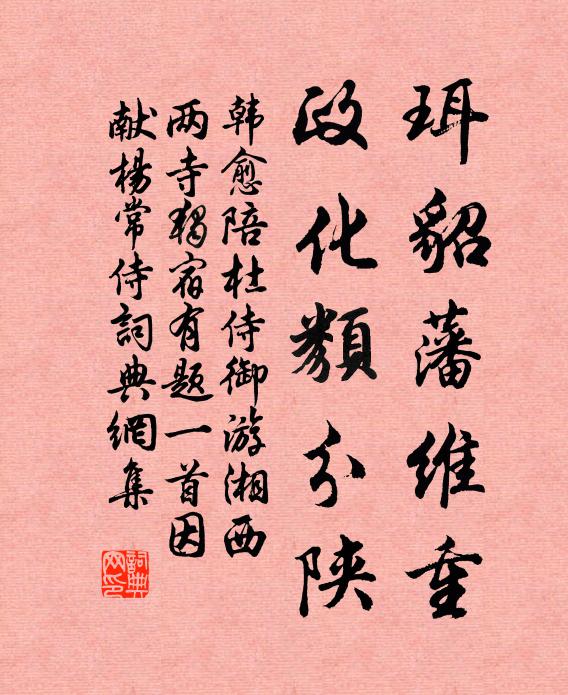 珥貂藩維重
政化類分陝
韩愈陪杜侍御游湘西
两寺獨宿有题一首因
献楊常侍詞典網集
詞典網印